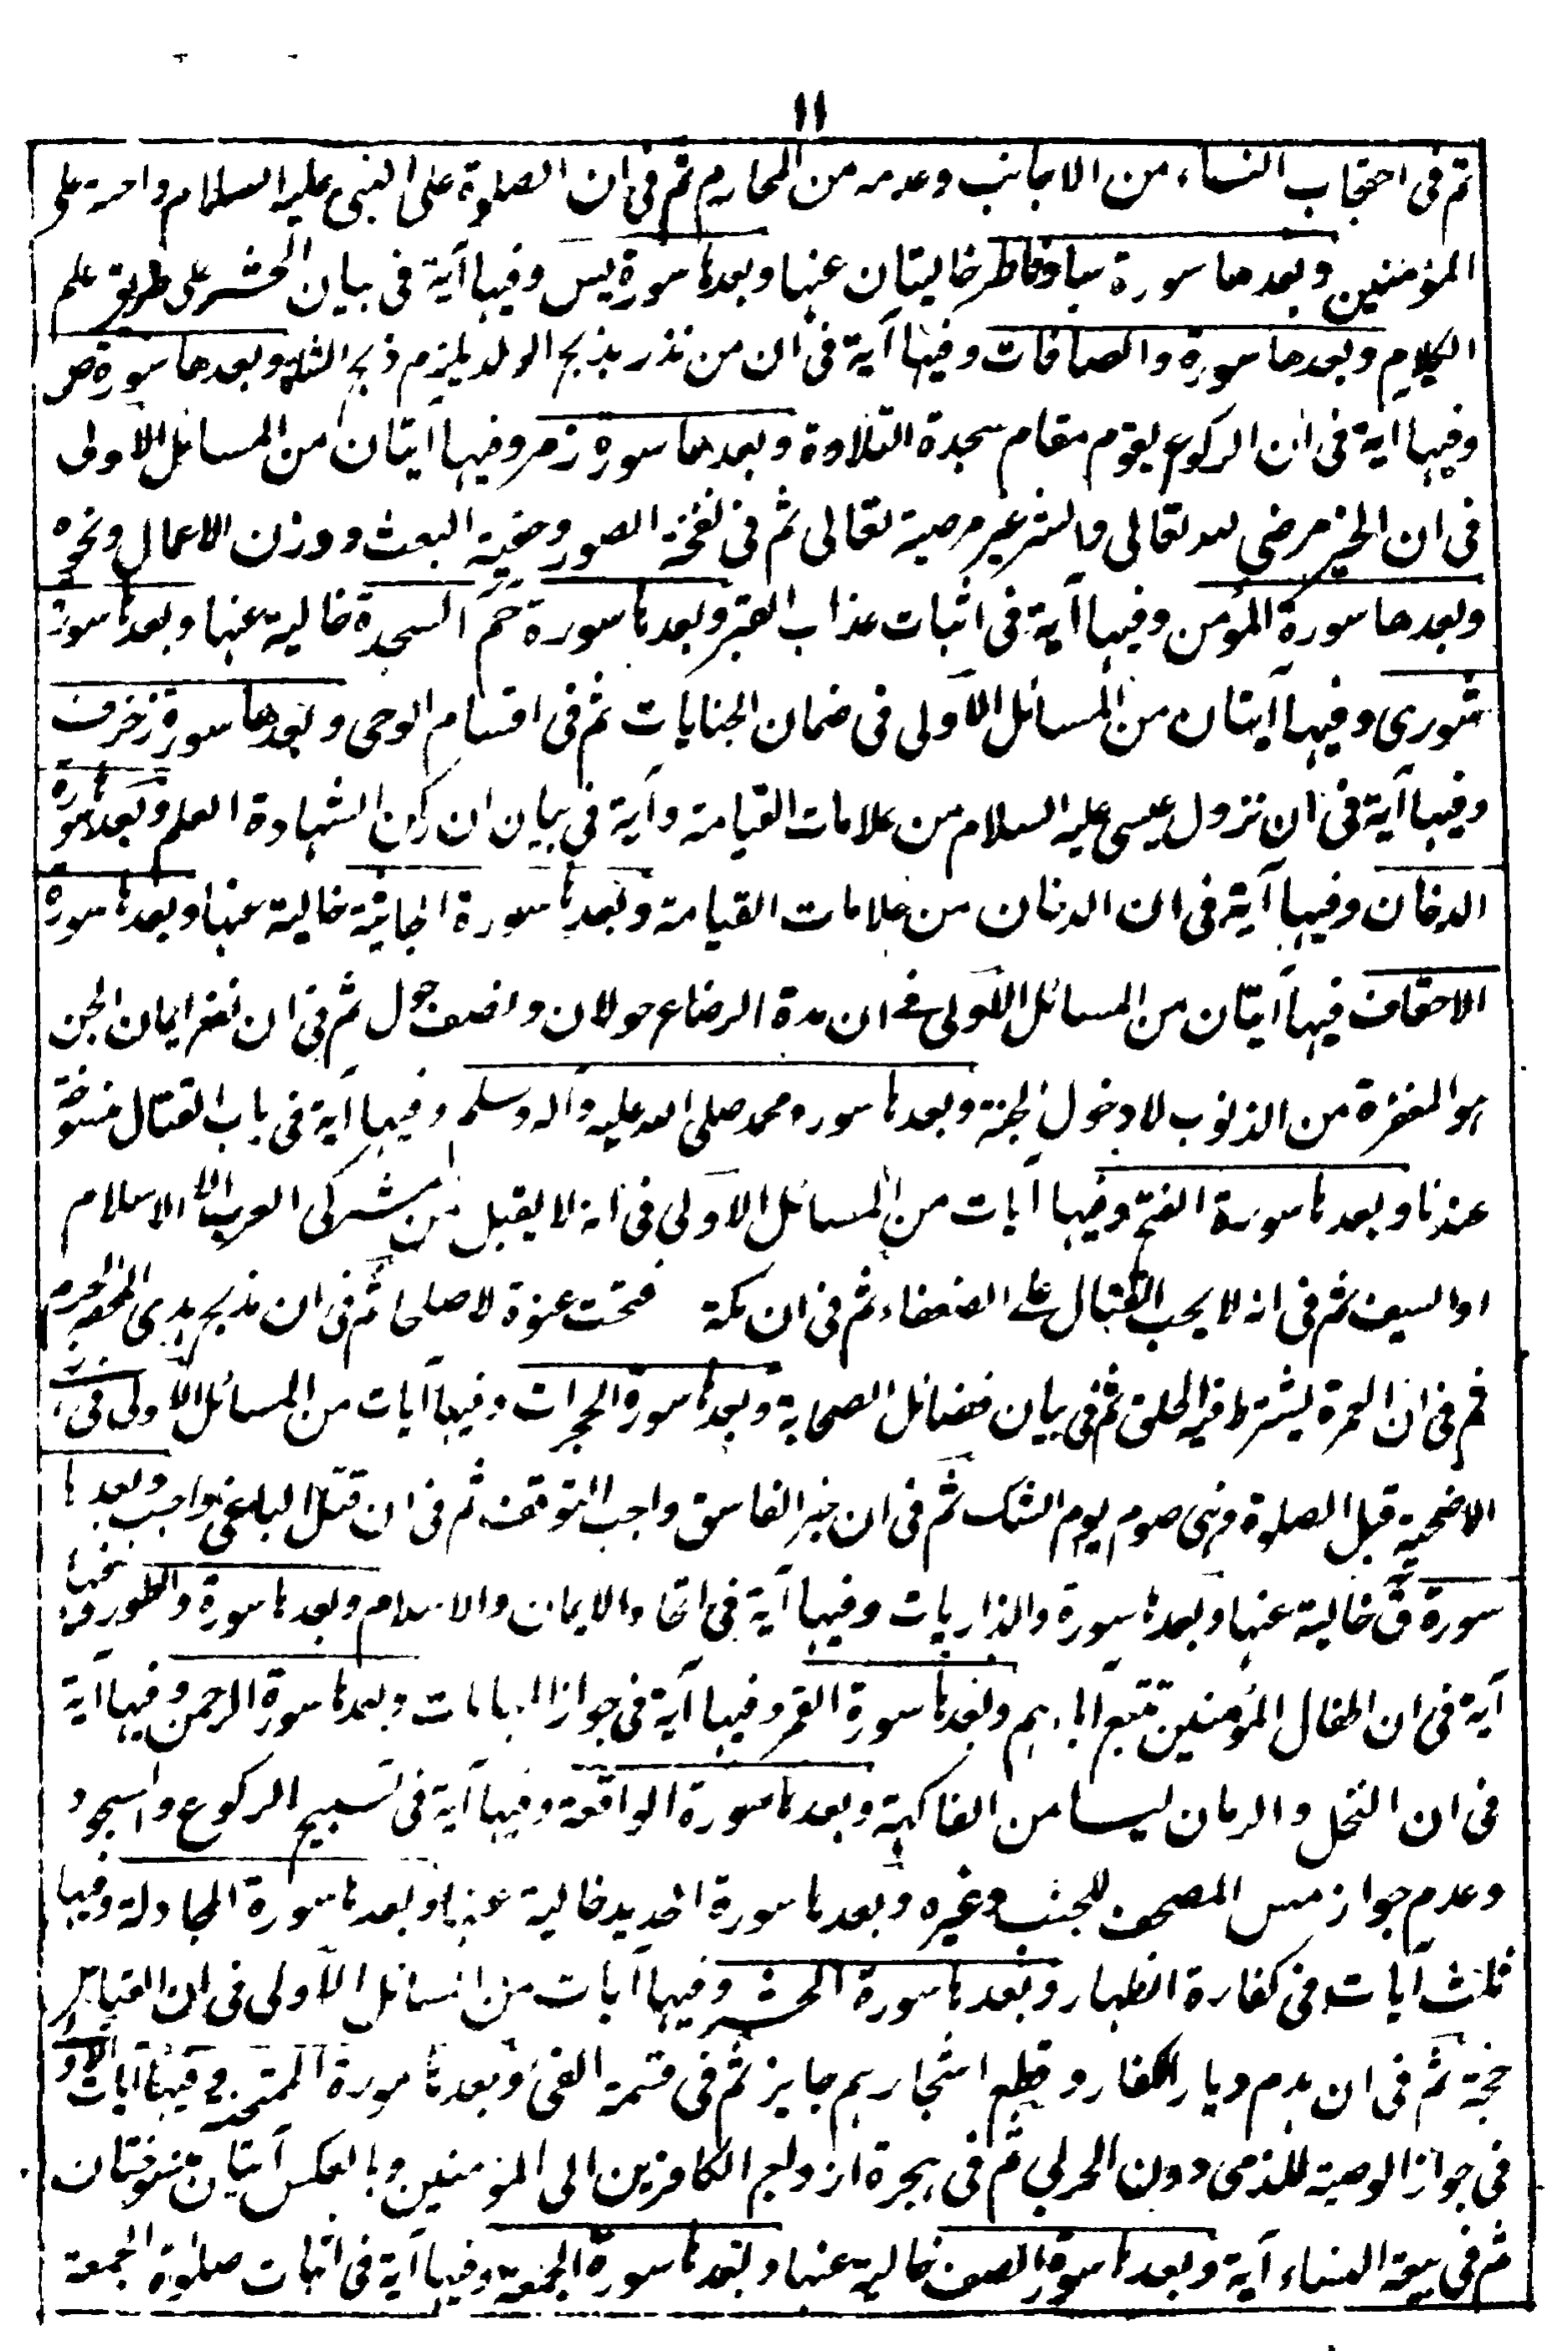 ١١
ثم فى احتجاب النساء من الاجانب وعدمه من المحارم ثم فى ان الصلوة على النبى عليه السلام واجبة على
المؤمنين وبعدها سورة سبا وفاطر خاليتان عنها وبعدها سورة يس وفيها آية فى بيان الحشر على طريق علم
الكلام وبعدها سورة والصافات وفيها آية فى ان من نذر بذبح الولد يلزم ذبح الشاة وبعدها سورة ص
وفيها اية فى ان الركوع يقوم مقام سجدة التلاوة وبعدها سورة زمر وفيها آيتان من المسائل الاولى
فى ان الخير مرضى لله تعالى والشر غير مرضية تعالى ثم فى نفخة الصور وحقية البعث ووزن الاعمال ونحوه
وبعدها سورة المؤمن وفيها آية فى اثبات عذاب القبر وبعدها سورة حم السجدة خالية عنها وبعدها سورة
شورى وفيها آيتان من المسائل الاولى فى ضمان الجنايات ثم فى اقسام الوحى وبعدها سورة زخرف
وفيها آية فى ان نزول عيسى عليه السلام من علامات القيامة وآية فى بيان ان ركن الشهادة العلم وبعدها سورة
الدخان وفيها آية فى ان الدخان من علامات القيامة وبعدها سورة الجاثية خالية عنها وبعدها سورة
الاحقاف فيها آيتان من المسائل الاولى فى ان مدة الرضاع حولان ونصف حول ثم فى ان نفع ايمان الجن
هو المغفرة من الذنوب لا دخول الجنة وبعدها سورة محمد صلى الله عليه وآله وسلم وفيها آية فى باب القتال منسوخة
عندنا وبعدها سورة الفتح وفيها آيات من المسائل الاولى فى انه لا يقبل من مشركى العرب الا الاسلام
او السيف ثم فى انه لا يجب القتال على الضعفاء ثم فى ان مكة فتحت عنوة لا صلحا ثم فى ان مذبح هدى المحصر الحرم
ثم فى ان العمرة يشترط فيه الحلق ثم فى بيان فضائل الصحابة وبعدها سورة الحجرات وفيها آيات من المسائل الاولى فى
الاضحية قبل الصلوة ونهى صوم يوم الشك ثم فى ان خبر الفاسق واجب التوقف ثم فى ان قتل الباغى واجب وبعدها
سورة ق خالية عنها وبعدها سورة والذاريات وفيها آية فى اتحاد الايمان والاسلام وبعدها سورة والطور وفيها
آية فى ان اطفال المؤمنين تتبع آباءهم وبعدها سورة القمر وفيها آية فى جواز المهاياة وبعدها سورة الرحمن وفيها آية
فى ان النخل والرمان ليسا من الفاكهة وبعدها سورة الواقعة وفيها آية فى تسبيح الركوع والسجود
وعدم جواز مس المصحف للجنب وغيره وبعدها سورة الحديد خالية عنها وبعدها سورة المجادلة وفيها
ثلث آيات فى كفارة الظهار وبعدها سورة الحشر وفيها آيات من المسائل الاولى فى ان القياس
حجة ثم فى ان هدم ديار الكفار وقطع اشجارهم جايز ثم فى قسمة الفئ وبعدها سورة الممتحنة وفيها آيات الاولى
فى جواز الوصية للذمى دون الحربى ثم فى هجرة ازواج الكافرين الى المؤمنين وبالعكس آيتان منسوختان
ثم فى بيعة النساء آية وبعدها سورة الصف خالية عنها وبعدها سورة الجمعة وفيها آية فى اثبات صلوة الجمعة